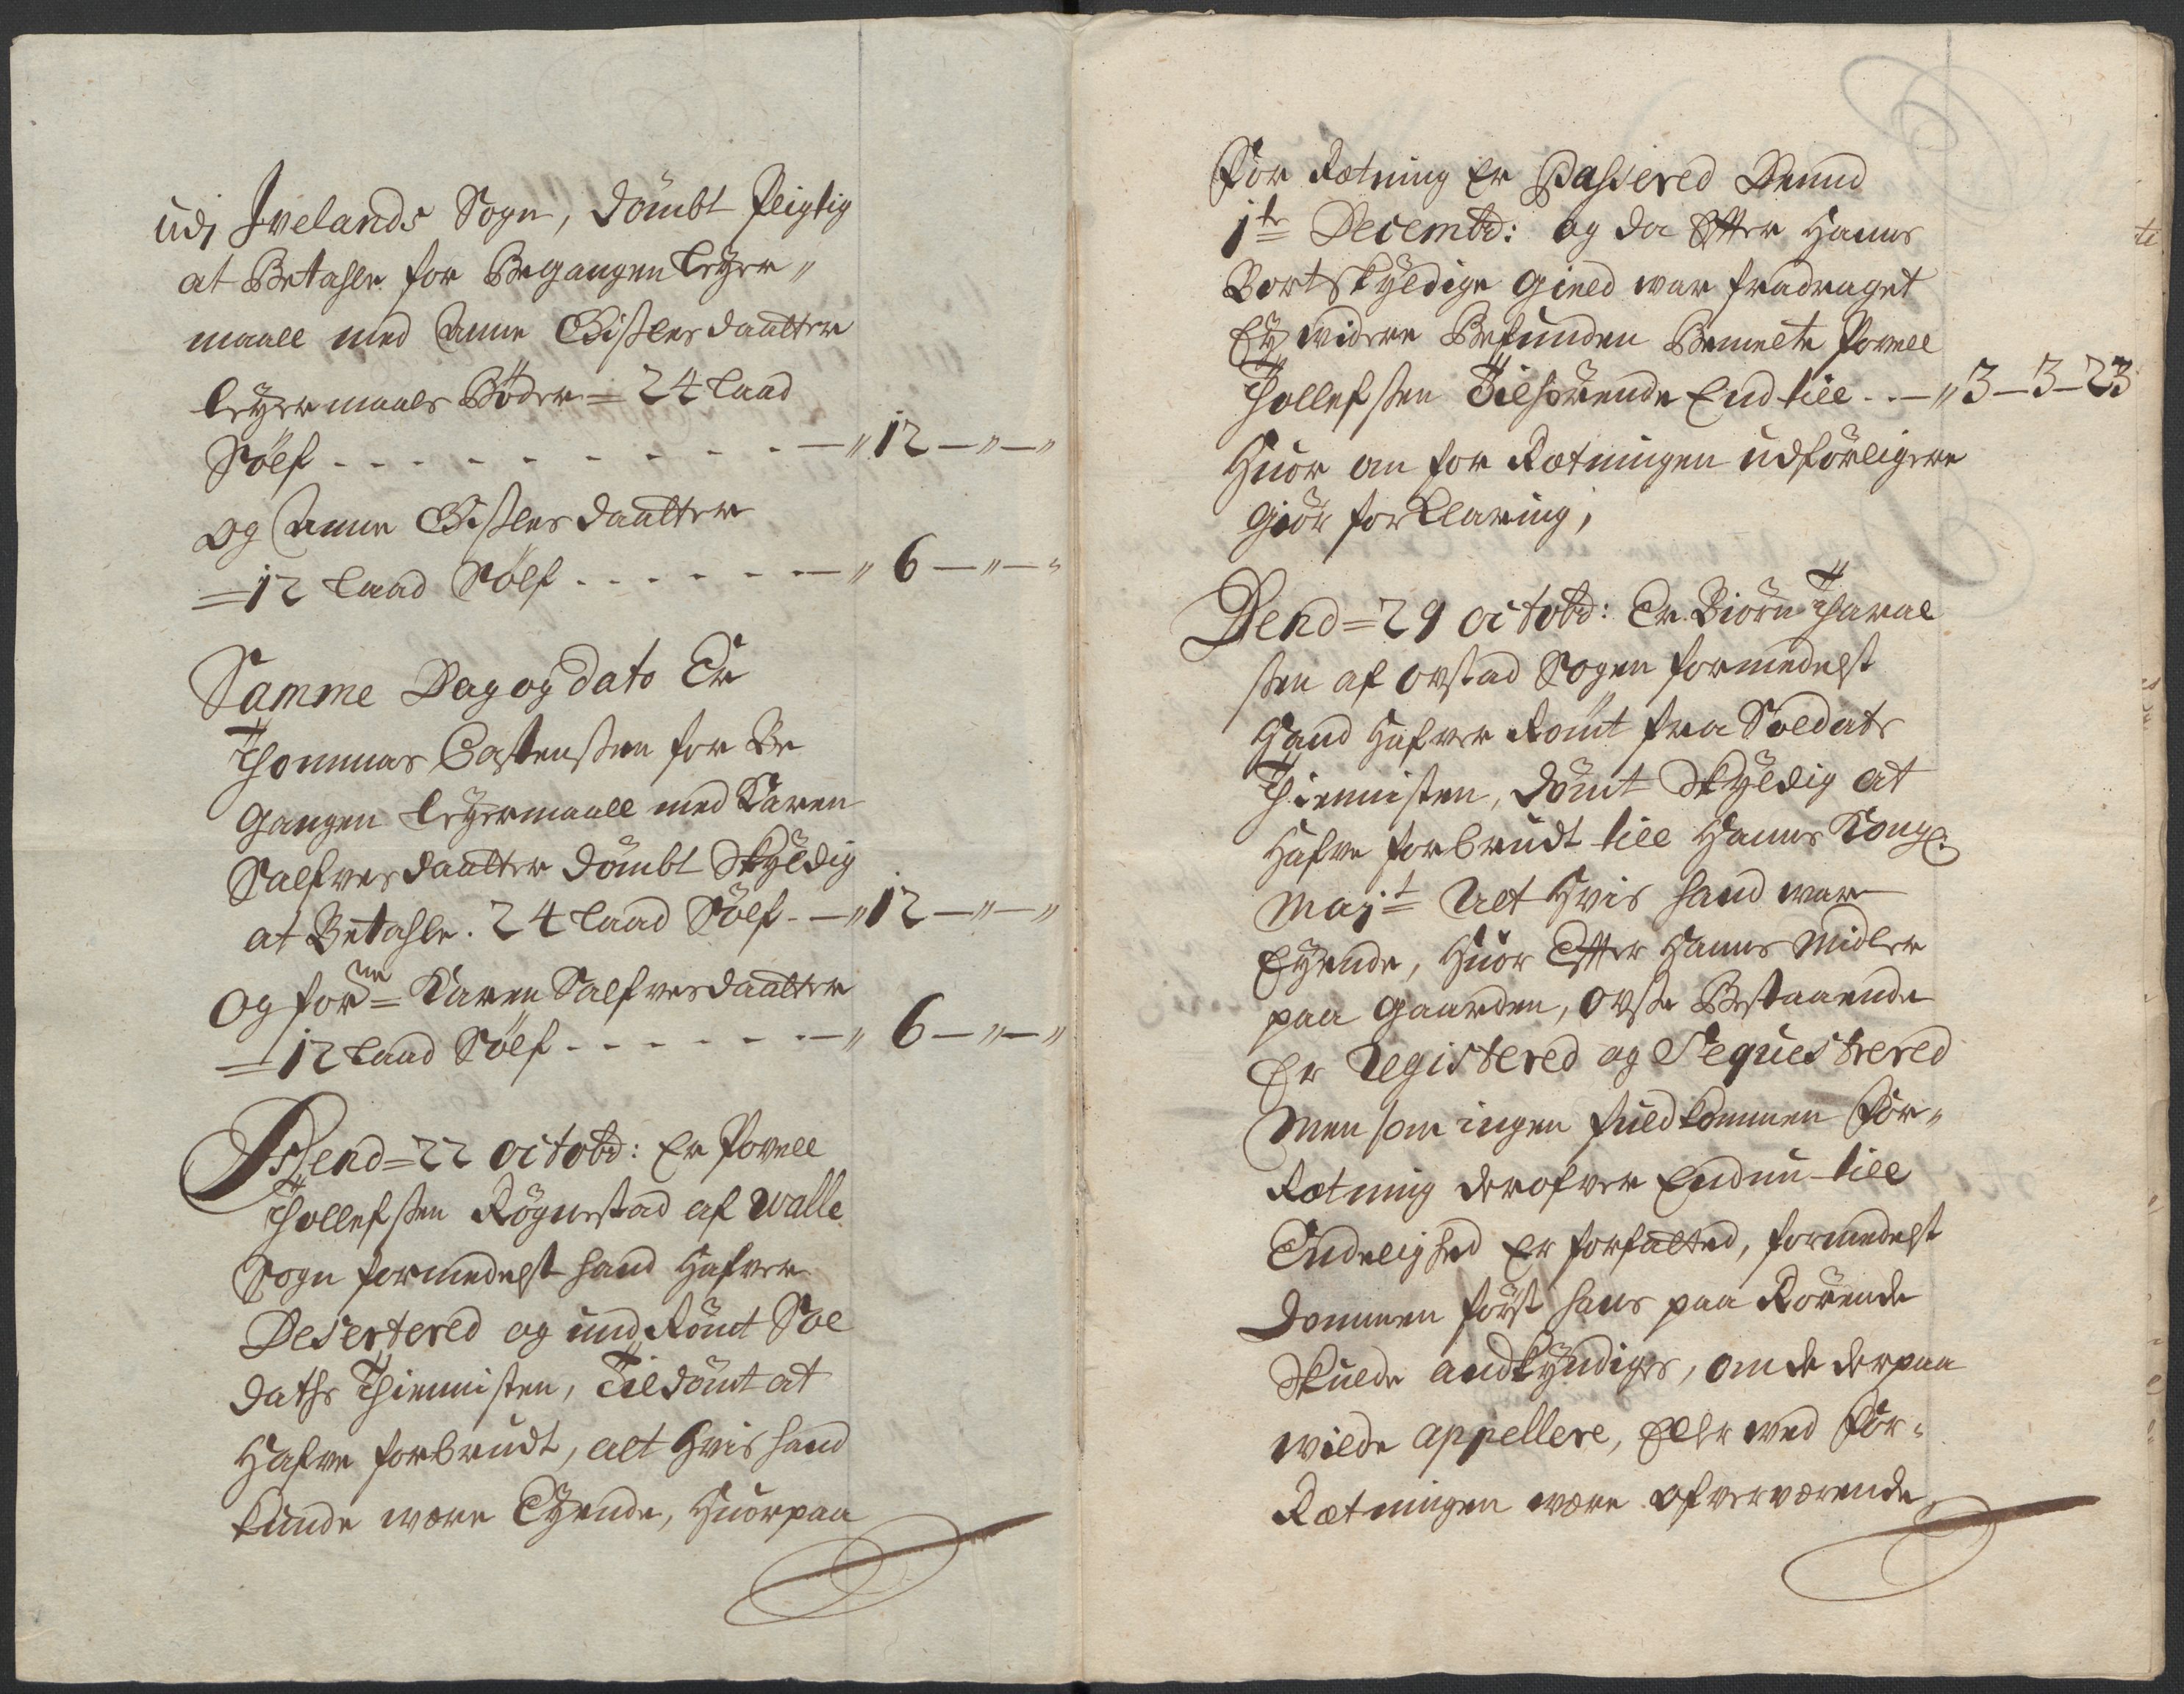 udj Ivelands Sogn, dömbt pligtig
at Betahle for Begangen leyer„
maall med Anne Gislesdaatter
leyermaals Böder = 24 laad
Sölf . . . . . . . . . . — „ 12 — „ — „
og Anne Gislesdaatter
= 12 laad Sölf . . . . . . — „ 6 — „ — „
Samme Dag og dato Er
Thommas Castenssen for Be
gangen leyermaall med Karen
Salfvesdaatter dömbt Skyldig
at Betahle . 24 laad Sölf - — „ 12 — „ — „
og forne = Karen Salfvesdaatter
= 12 laad Sölf . . . . . . — „ 6 — „ — „
Dend = 22 octobr: Er Povell
Thollefssen Rögnestad af Walle
Sogn formedelst hand Hafver
Desertered og undRömt Sol
daths Thiennisten, Tildömt at
Hafve forbrudt, alt hvis hand
kunde være Eyende, Huorpaa
For Rætning er Passered Dennd
1te Decembr: og da Effter Hanns
Bortskyldige gield war fradraget
Ey widere Befunden Bemelte Povell
Thollefssen Tilhörende End till . . — „ 3 — 3 — 23
Huor om for Rætningen udförligere
giör forklaring,
Dend = 29 octobr: Er Biörn Tharal
ssen af ovstad Sogen formedelst
Hand Hafver Römt fra Soldats
Thiennisten, dömt Skyldig at
Hafve forbrudt till Hanns Kongl:
Mayt Alt Hvis hand war
Eyende, Huor Effter Hanns Midler
paa gaarden, ovsse Bestaaende
Er Registered og Sequestrered
Men som ingen fuldkommen For„
Rætning derofver Endnu till
Endelighed er forfatted, formedelst
Dommen först hans paa Rörende
Skulde andkyndiges, om de derpaa
wilde appellere, Eller ved For„
Rætningen være ofverværende